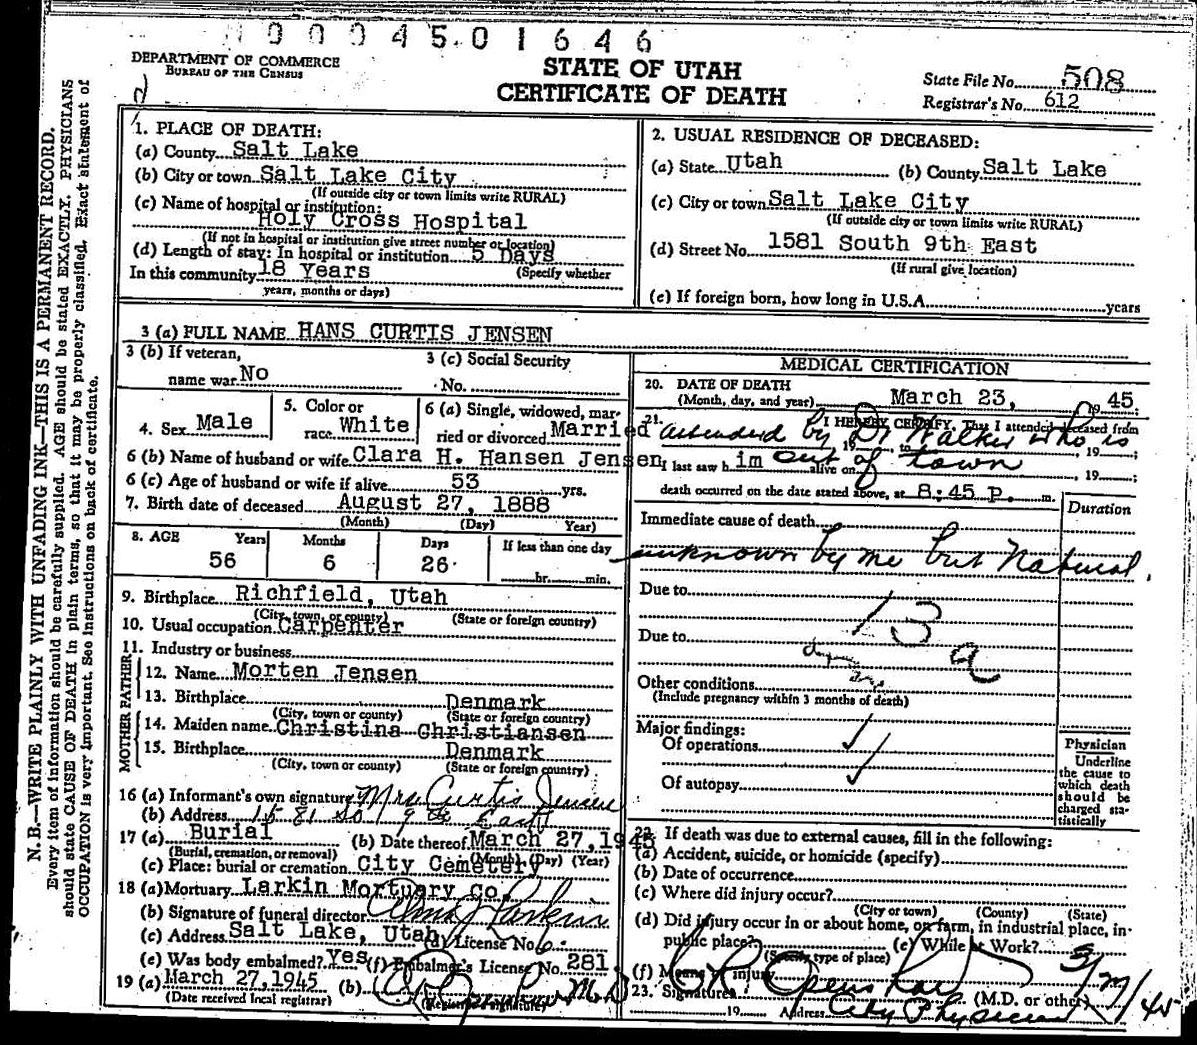 0 0 0 4 5 0 1 6 4 6
DEPARTMENT OF COMMERCE
BUREAU OF THE CENSUS
STATE OF UTAH
CERTIFICATE OF DEATH
State File No. 508
Registrar's No. 612
N. B.—WRITE PLAINLY WITH UNFADING INK—THIS IS A PERMANENT RECORD.
Every item of information should be carefully supplied. AGE should be stated EXACTLY. PHYSICIANS
should state CAUSE OF DEATH in plain terms, so that it may be properly classified. Exact statement of
OCCUPATION is very important. See instructions on back of certificate.
1. PLACE OF DEATH:
(a) County Salt Lake
(b) City or town Salt Lake City
(If outside city or town limits write RURAL)
(c) Name of hospital or institution:
Holy Cross Hospital
(If not in hospital or institution give street number or location)
(d) Length of stay: In hospital or institution 5 Days
In this community 18 Years (Specify whether
years, months or days)
2. USUAL RESIDENCE OF DECEASED:
(a) State Utah (b) County Salt Lake
(c) City or town Salt Lake City
(If outside city or town limits write RURAL)
(d) Street No. 1581 South 9th East
(If rural give location)
(e) If foreign born, how long in U.S.A. years
3 (a) FULL NAME HANS CURTIS JENSEN
3 (b) If veteran,
name war No
3 (c) Social Security
No.
4. Sex Male
5. Color or
race White
6 (a) Single, widowed, mar-
ried or divorced Married
6 (b) Name of husband or wife Clara H. Hansen Jensen
6 (c) Age of husband or wife if alive 53 yrs.
7. Birth date of deceased August 27, 1888
(Month) (Day) Year)
8. AGE Years Months Days If less than one day
56 6 26 hr. min.
9. Birthplace Richfield, Utah
(City, town, or county) (State or foreign country)
10. Usual occupation Carpenter
11. Industry or business
FATHER
12. Name Morten Jensen
13. Birthplace Denmark
(City, town or county) (State or foreign country)
MOTHER
14. Maiden name Christina Christiansen
15. Birthplace Denmark
(City, town or county) (State or foreign country)
16 (a) Informant's own signature Mrs Curtis Jensen
(b) Address 1581 So 9th East
17 (a) Burial (b) Date thereof March 27, 1945
(Burial, cremation, or removal) (Month) (Day) (Year)
(c) Place: burial or cremation City Cemetery
18 (a) Mortuary Larkin Mortuary Co.
(b) Signature of funeral director Larkin
(c) Address Salt Lake, Utah (d) License No. 6
(e) Was body embalmed? Yes (f) Embalmer's License No. 281
19 (a) March 27, 1945 (b) M.D.
(Date received local registrar) (Registrar's signature)
MEDICAL CERTIFICATION
20. DATE OF DEATH
(Month, day, and year) March 23, 19 45
21. I HEREBY CERTIFY, That I attended deceased from
attended by Dr Walker who is
19 to , 19 ;
I last saw h im alive on , 19 ;
out of town
death occurred on the date stated above, at 8:45 P. m.
Duration
Immediate cause of death
unknown by me but Natural.
Due to
13
Due to
a
Other conditions
(Include pregnancy within 3 months of death)
Major findings:
Of operations ✓
Of autopsy ✓
Physician
Underline
the cause to
which death
should be
charged sta-
tistically
22. If death was due to external causes, fill in the following:
(a) Accident, suicide, or homicide (specify)
(b) Date of occurrence
(c) Where did injury occur?
(City or town) (County) (State)
(d) Did injury occur in or about home, on farm, in industrial place, in-
public place? (e) While at Work?
(Specify type of place)
(f) Means injury
23. Signature (M.D. or other)
19 Address City Physician